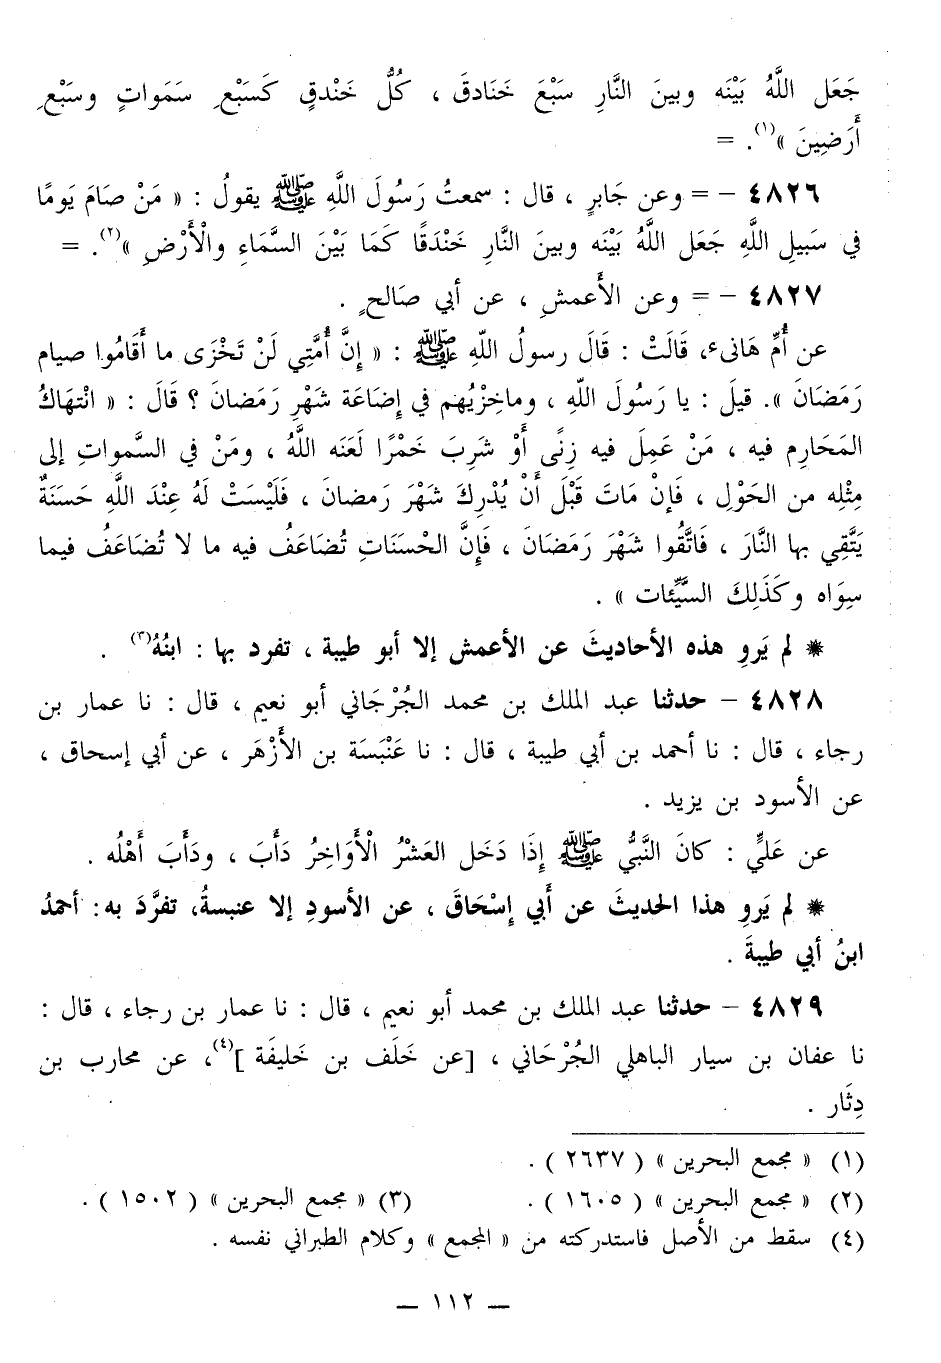 جَعَل اللَّهُ بَيْنَه وبينَ النَّارِ سَبْعَ خَنَادقَ ، كُلُّ خَنْدقٍ كَسَبْعِ سَمَواتٍ وسَبْعِ
أَرَضِينَ »(١). =
٤٨٢٦ – = وعن جَابرٍ ، قال : سمعتُ رَسُولَ اللَّهِ ﷺ يقولُ : « مَنْ صَامَ يَومًا
في سَبيلِ اللَّهِ جَعَل اللَّهُ بَيْنَه وبينَ النَّارِ خَنْدَقًا كَمَا بَيْنَ السَّمَاءِ والْأَرْضِ »(٢). =
٤٨٢٧ – = وعن الأَعمشِ ، عن أبي صَالحٍ .
عن أُمِّ هَانىءٍ، قَالَتْ : قَالَ رسولُ اللَّهِ ﷺ : « إِنَّ أُمَّتِي لَنْ تَخْزَى ما أَقَامُوا صيام
رَمَضَانَ ». قيلَ : يا رَسُولَ اللَّهِ ، وماخِزْيُهم في إِضَاعَة شَهْرِ رَمضانَ ؟ قَالَ : « انْتهَاكُ
المَحَارِم فيه ، مَنْ عَمِلَ فيه زِنًى أَوْ شَرِبَ خَمْرًا لَعَنَه اللَّهُ ، ومَنْ في السَّمواتِ إلى
مِثْلِه من الحَوْلِ ، فَإنْ مَاتَ قَبْلَ أَنْ يُدْرِكَ شَهْرَ رَمضانَ ، فَلَيْسَتْ لَهُ عِنْدَ اللَّهِ حَسَنَةٌ
يَتَّقِي بها النَّارَ ، فَاتَّقُوا شَهْرَ رَمَضَانَ ، فَإِنَّ الحْسَنَاتِ تُضَاعَفُ فيه ما لا تُضَاعَفُ فيما
سِوَاه وكَذَلِكَ السَّيِّئَات » .
* لم يَروِ هذه الأحاديثَ عن الأعمش إلا أبو طيبة ، تفرد بها : ابنُهُ(٣) .
٤٨٢٨ – حدثنا عبد الملك بن محمد الجُرْجَاني أبو نعيم ، قال : نا عمار بن
رجاء ، قال : نا أحمد بن أبي طيبة ، قال : نا عَنْبَسَة بن الأَزْهَر ، عن أبي إسحاق ،
عن الأسود بن يزيد .
عن عَليٍّ : كانَ النَّبيُّ ﷺ إِذَا دَخَل العَشْرُ الْأَوَاخِرُ دَأَبَ ، ودَأَبَ أَهْلُه .
* لم يَروِ هذا الحديثَ عن أَبي إِسْحَاقَ ، عن الأسودِ إلا عنبسةُ، تفرَّدَ به: أحمدُ
ابنُ أبي طيبةَ .
٤٨٢٩ – حدثنا عبد الملك بن محمد أبو نعيم ، قال : نا عمار بن رجاء ، قال :
نا عفان بن سيار الباهلي الجُرْحَاني ، [عن خَلَف بن خَليفَة ](٤)، عن محارب بن
دِثَار .
(١) « مجمع البحرين » ( ٢٦٣٧ ) .
(٢) « مجمع البحرين » ( ١٦٠٥ ) . (٣) « مجمع البحرين » ( ١٥٠٢ ) .
(٤) سقط من الأصل فاستدركته من « المجمع » وكلام الطبراني نفسه .
– ١١٢ –